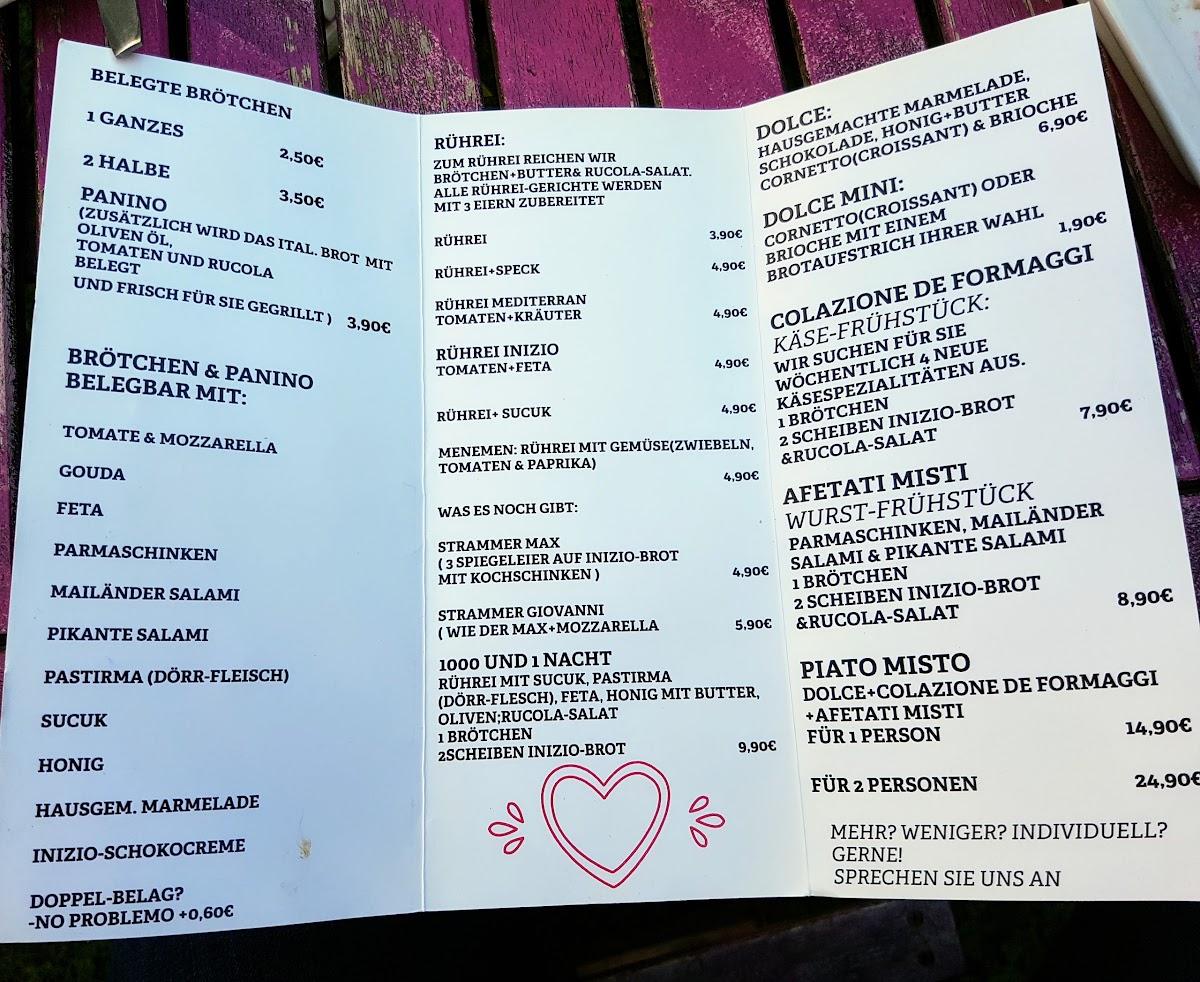 BELEGTE BRÖTCHEN
1 GANZES
2,50€
2 HALBE
3,50€
PANINO
(ZUSÄTZLICH WIRD DAS ITAL. BROT MIT
OLIVEN ÖL,
TOMATEN UND RUCOLA
BELEGT
UND FRISCH FÜR SIE GEGRILLT ) 3,90€
BRÖTCHEN & PANINO
BELEGBAR MIT:
TOMATE & MOZZARELLA
GOUDA
FETA
PARMASCHINKEN
MAILÄNDER SALAMI
PIKANTE SALAMI
PASTIRMA (DÖRR-FLEISCH)
SUCUK
HONIG
HAUSGEM. MARMELADE
INIZIO-SCHOKOCREME
DOPPEL-BELAG?
-NO PROBLEMO +0,60€
RÜHREI:
ZUM RÜHREI REICHEN WIR
BRÖTCHEN+BUTTER& RUCOLA-SALAT.
ALLE RÜHREI-GERICHTE WERDEN
MIT 3 EIERN ZUBEREITET
RÜHREI 3,90€
RÜHREI+SPECK 4,90€
RÜHREI MEDITERRAN
TOMATEN+KRÄUTER 4,90€
RÜHREI INIZIO
TOMATEN+FETA 4,90€
RÜHREI+ SUCUK 4,90€
MENEMEN: RÜHREI MIT GEMÜSE(ZWIEBELN,
TOMATEN & PAPRIKA)
4,90€
WAS ES NOCH GIBT:
STRAMMER MAX
( 3 SPIEGELEIER AUF INIZIO-BROT
MIT KOCHSCHINKEN ) 4,90€
STRAMMER GIOVANNI
( WIE DER MAX+MOZZARELLA 5,90€
1000 UND 1 NACHT
RÜHREI MIT SUCUK, PASTIRMA
(DÖRR-FLESCH), FETA, HONIG MIT BUTTER,
OLIVEN;RUCOLA-SALAT
1 BRÖTCHEN
2SCHEIBEN INIZIO-BROT 9,90€
DOLCE:
HAUSGEMACHTE MARMELADE,
SCHOKOLADE, HONIG+BUTTER
CORNETTO(CROISSANT) & BRIOCHE
6,90€
DOLCE MINI:
CORNETTO(CROISSANT) ODER
BRIOCHE MIT EINEM
BROTAUFSTRICH IHRER WAHL 1,90€
COLAZIONE DE FORMAGGI
KÄSE-FRÜHSTÜCK:
WIR SUCHEN FÜR SIE
WÖCHENTLICH 4 NEUE
KÄSESPEZIALITÄTEN AUS.
1 BRÖTCHEN
2 SCHEIBEN INIZIO-BROT 7,90€
&RUCOLA-SALAT
AFETATI MISTI
WURST-FRÜHSTÜCK
PARMASCHINKEN, MAILÄNDER
SALAMI & PIKANTE SALAMI
1 BRÖTCHEN
2 SCHEIBEN INIZIO-BROT 8,90€
&RUCOLA-SALAT
PIATO MISTO
DOLCE+COLAZIONE DE FORMAGGI
+AFETATI MISTI
FÜR 1 PERSON 14,90€
FÜR 2 PERSONEN 24,90€
MEHR? WENIGER? INDIVIDUELL?
GERNE!
SPRECHEN SIE UNS AN